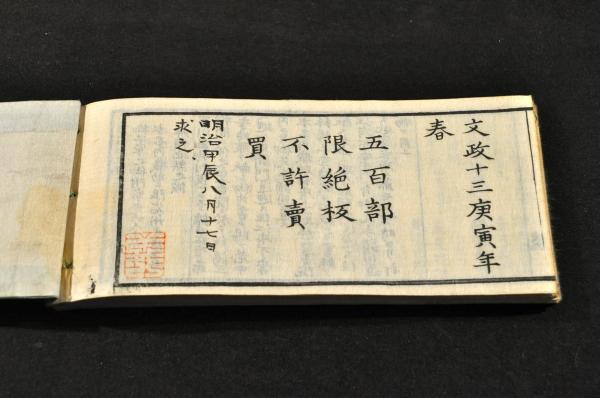 文政十三庚寅年
春
五百部
限絶板
不許賣
買
明治甲辰八月十七日
求之、